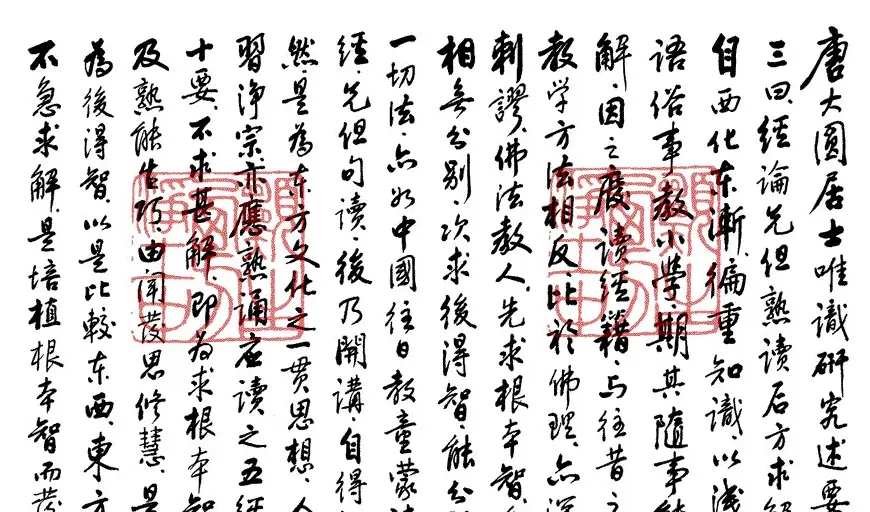 唐大圓居士唯識研究述要
三曰、经論先但熟读后方求解
自西化东漸、徧重知識、以浅
语俗事教小學、期其隨事能
解、因之废读经籍、与往昔之
教学方法相反、比於佛理、亦深
刺謬、佛法教人、先求根本智、
相無分别、次求後得智、能分
一切法、亦如中國往日教童蒙读
经、先但句读、後乃開講、自得
然是為东方文化之一贯思想、人
習淨宗亦應熟誦应读之五经
十要、不求甚解、即为求根本智
及熟能生巧、由闻发思修慧、是
為後得智、以是比較东西、東方
不急求解、是培植根本智而发